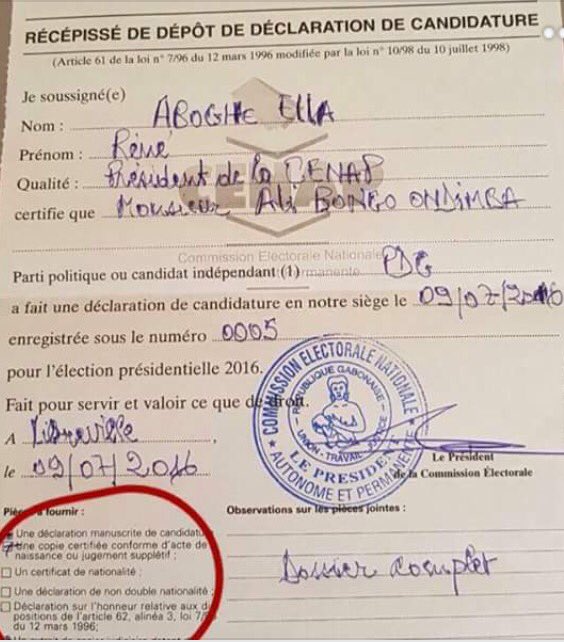 RÉCÉPISSÉ DE DÉPÔT DE DÉCLARATION DE CANDIDATURE
(Article 61 de la loi n° 7/96 du 12 mars 1996 modifiée par la loi n° 10/98 du 10 juillet 1998)
Je soussigné(e)
Nom : ABOGHE ELLA
Prénom : Réné
Qualité : Président de la CENAP
certifie que Monsieur Ali BONGO ONDIMBA
CENAP
Commission Electorale Nationale
Parti politique ou candidat indépendant (1) PDG
a fait une déclaration de candidature en notre siège le 09/07/2016
enregistrée sous le numéro 0005
pour l'élection présidentielle 2016.
Fait pour servir et valoir ce que de droit.
A Libreville,
le 09/07/2016
COMMISSION ELECTORALE NATIONALE
AUTONOME ET PERMANENTE
REPUBLIQUE GABONAISE
UNION - TRAVAIL - JUSTICE
LE PRESIDENT
Le Président
de la Commission Électorale
Pièces à fournir :
Une déclaration manuscrite de candidatu
Une copie certifiée conforme d'acte de
naissance ou jugement supplétif ;
Un certificat de nationalité ;
Une déclaration de non double nationalité ;
Déclaration sur l'honneur relative aux d
positions de l'article 62, alinéa 3, loi 7/
du 12 mars 1996;
Observations sur les pièces jointes :
Dossier complet